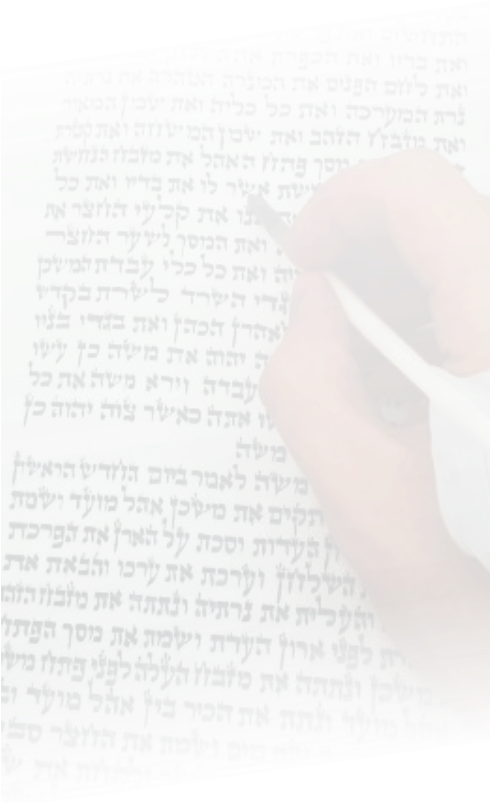 התחשים ואת
ואת בדיו ואת הכפרת את
ואת לחם הפנים את המנרה הטהרה את נרתיה
נרת המערכה ואת כל כליה ואת שמן המאור
ואת מזבח הזהב ואת שמן המשחה ואת קטרת
מסך פתח האהל את מזבח הנחשת
אשר לו את בדיו ואת כל
את קלעי החצר את
ואת המסך לשער החצר
ואת כל כלי עבדת המשכן
השרד לשרת בקדש
לאהרן הכהן ואת בגדי בניו
יהוה את משה כן עשו
העבדה וירא משה את כל
אתה כאשר צוה יהוה כן
משה
משה לאמר ביום החדש הראשון
תקים את משכן אהל מועד ושמת
העדות וסכת על הארן את הפרכת
השלחן וערכת את ערכו והבאת את
והעלית את נרתיה ונתתה את מזבח הזהב
לפני ארון העדת ושמת את מסך הפתח
ונתתה את מזבח העלה לפני פתח משכן
ונתת את הכיר בין אהל מועד ובין
מים ושמת את החצר סביב